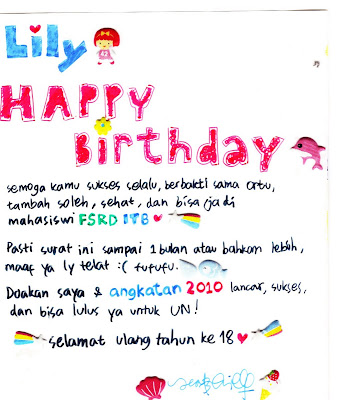 Lily
HAPPY
Birthday
semoga kamu sukses selalu, berbakti sama ortu,
tambah soleh, sehat, dan bisa jadi
mahasiswi FSRD ITB
Pasti surat ini sampai 1 bulan atau bahkan lebih,
maaf ya ly telat :( fufufu.
Doakan saya & angkatan 2010 lancar, sukses,
dan bisa lulus ya untuk UN!
selamat ulang tahun ke 18